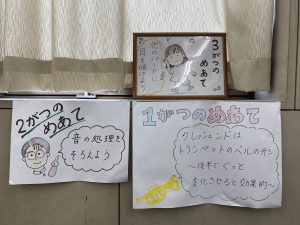 3がつの
めあて
他のパートに
耳を傾けよう
2がつの
めあて
音の処理を
そろえよう
1がつのめあて
クレッシェンドは
トランペットのベルの形
〜後半でぐっと
変化させると効果的〜